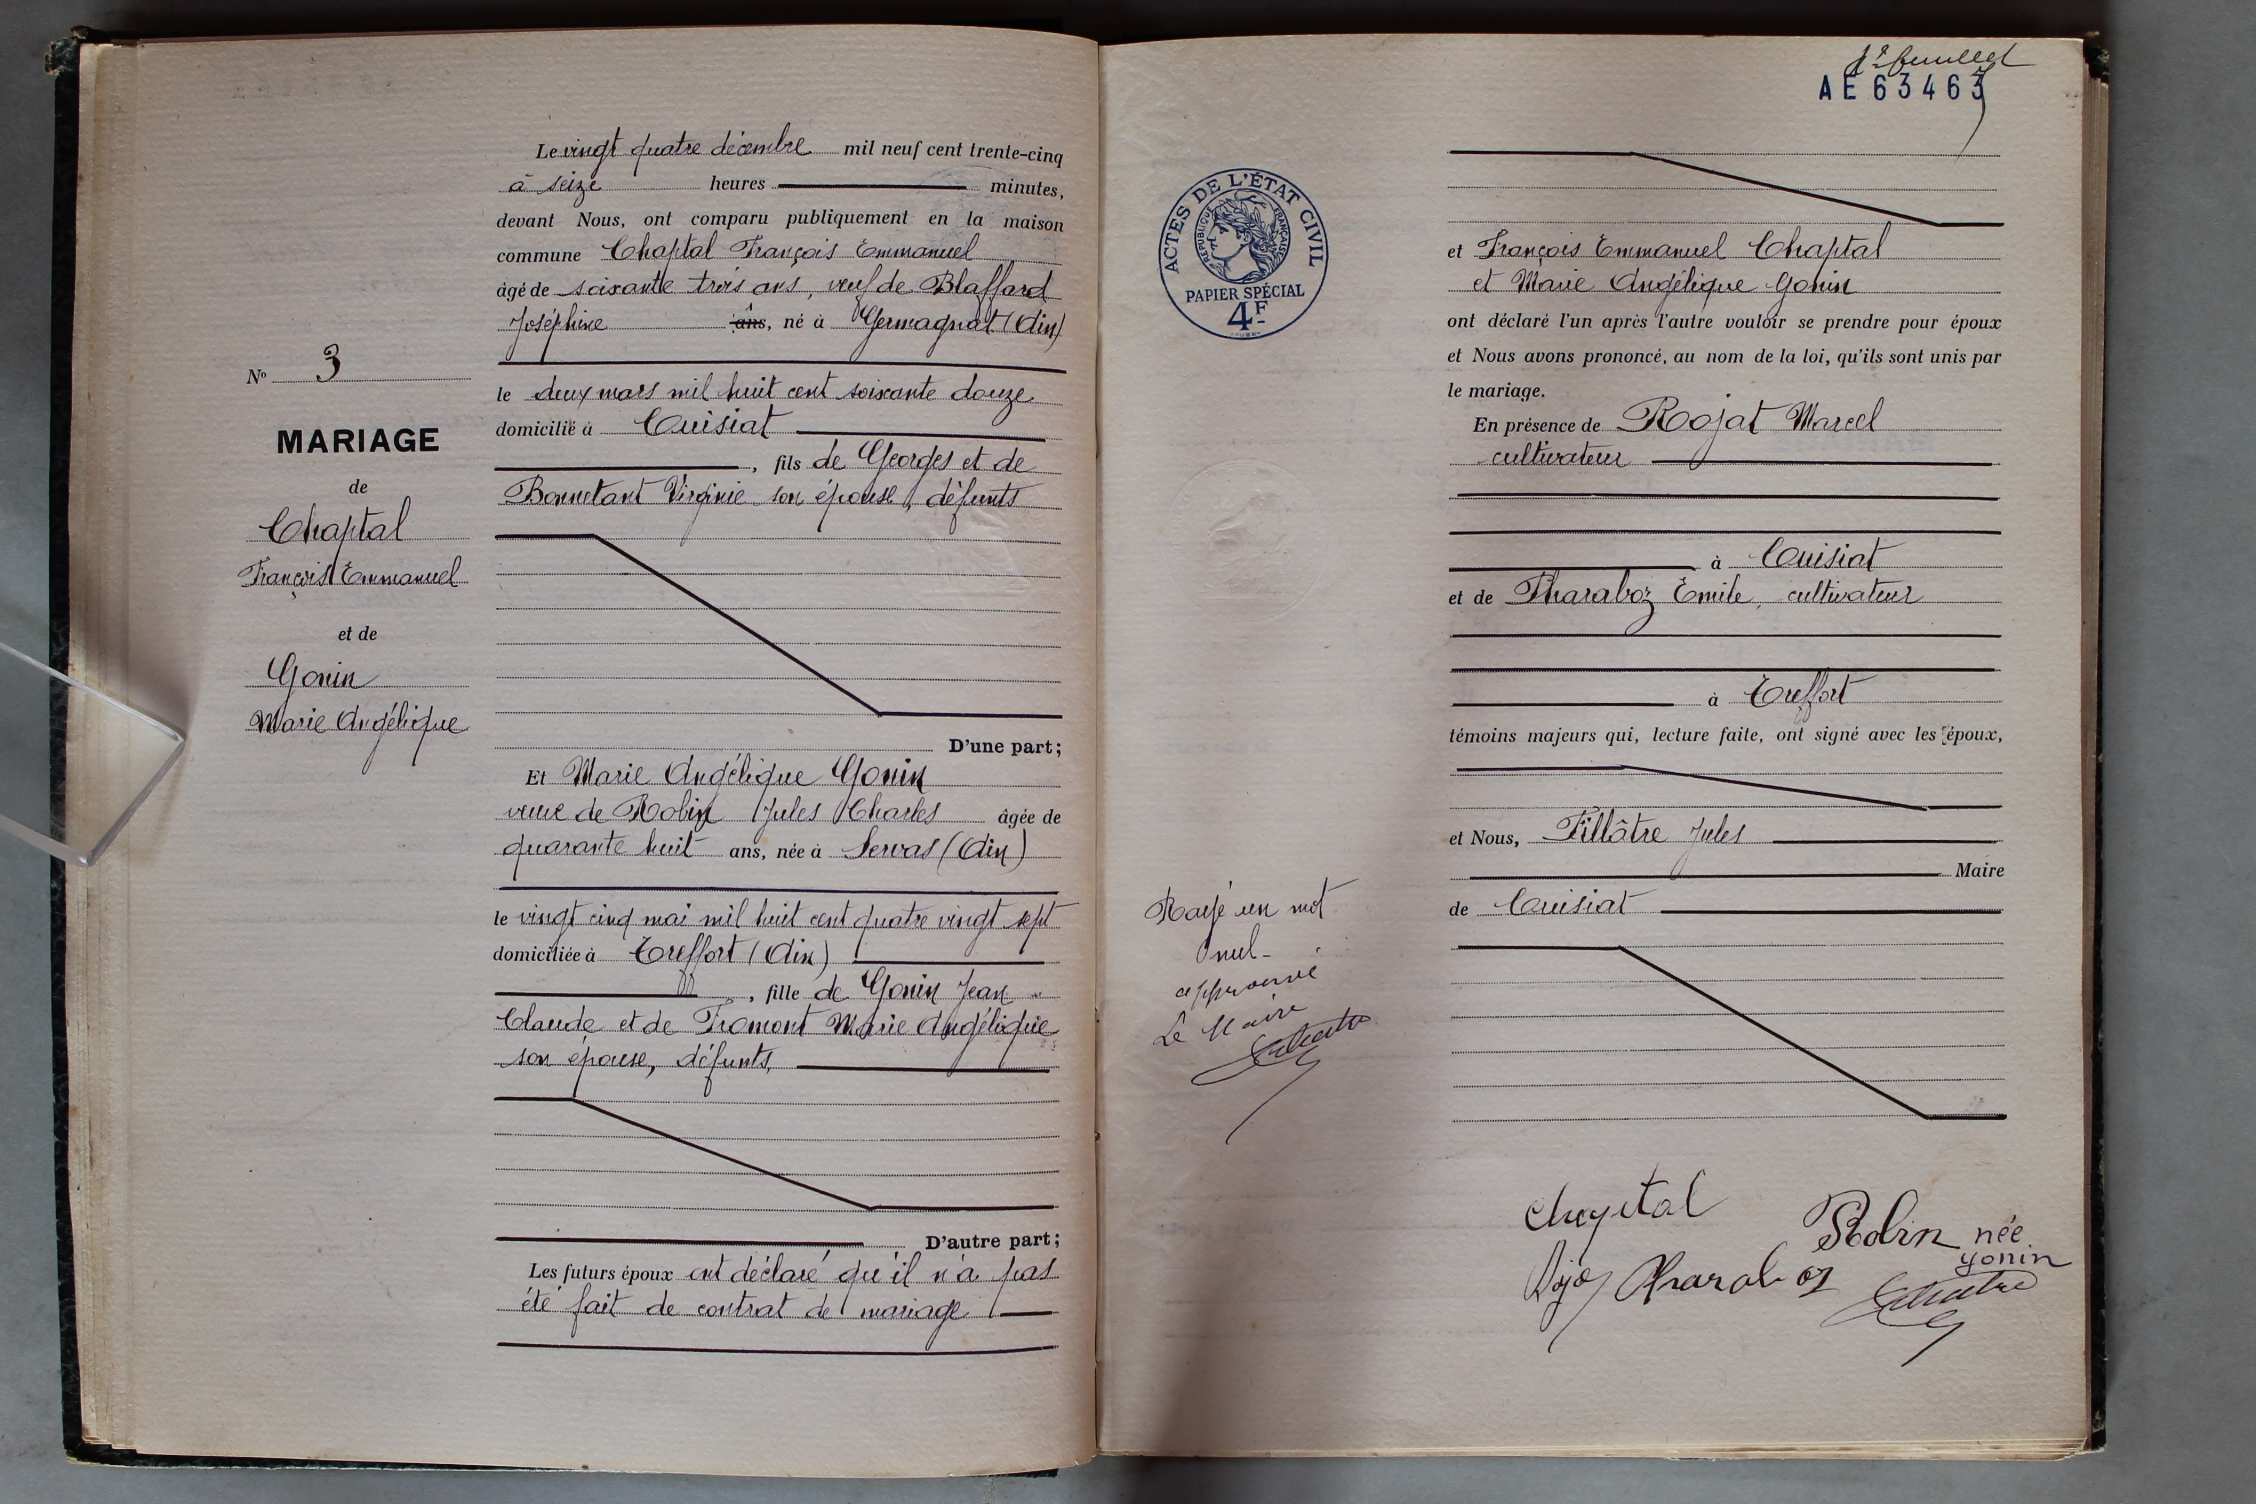 Le vingt quatre décembre mil neuf cent trente-cinq
à seize heures minutes,
devant Nous, ont comparu publiquement en la maison
commune Chaptal François Emmanuel
âgé de soixante trois ans, veuf de Blaffard
Joséphine ans, né à Germagnat (Ain)
le deux mars mil huit cent soixante douze
domicilié à Cuisiat
, fils de Georges et de
Bonnetant Virginie son épouse, défunts
D'une part;
Et Marie Angélique Gonin
veuve de Robin Jules Charles âgée de
quarante huit ans, née à Servas (Ain)
le vingt cinq mai mil huit cent quatre vingt sept
domiciliée à Treffort (Ain)
, fille de Gonin Jean
Claude et de Fromont Marie Angélique
son épouse, défunts,
D'autre part;
Les futurs époux ont déclaré qu'il n'a pas
été fait de contrat de mariage
No 3
MARIAGE
de
Chaptal
François Emmanuel
et de
Gonin
Marie Angélique
feuillet
AE63463
ACTES DE L'ÉTAT CIVIL
RÉPUBLIQUE FRANÇAISE
PAPIER SPÉCIAL
4F
et François Emmanuel Chaptal
et Marie Angélique Gonin
ont déclaré l'un après l'autre vouloir se prendre pour époux
et Nous avons prononcé, au nom de la loi, qu'ils sont unis par
le mariage.
En présence de Rojat Marcel
cultivateur
à Cuisiat
et de Pharaboz Emile, cultivateur
à Treffort
témoins majeurs qui, lecture faite, ont signé avec les époux,
et Nous, Fillâtre Jules
Maire
de Cuisiat
Rayé un mot
nul-
approuvé
Le Maire
Chaptal
Robin née
gonin
Pharaboz